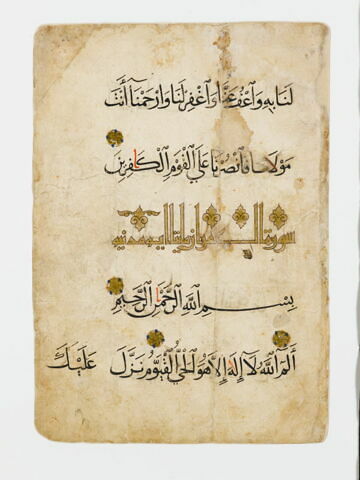 لَنَا بِهِ وَٱعْفُ عَنَّا وَٱغْفِرْ لَنَا وَٱرْحَمْنَا أَنْتَ
مَوْلَانَا فَٱنْصُرْنَا عَلَى ٱلْقَوْمِ ٱلْكَافِرِينَ
سورة ال عمران مائتا اية مدنية
بِسْمِ ٱللَّهِ ٱلرَّحْمَٰنِ ٱلرَّحِيمِ
الٓمٓ ٱللَّهُ لَآ إِلَٰهَ إِلَّا هُوَ ٱلْحَيُّ ٱلْقَيُّومُ نَزَّلَ عَلَيْكَ